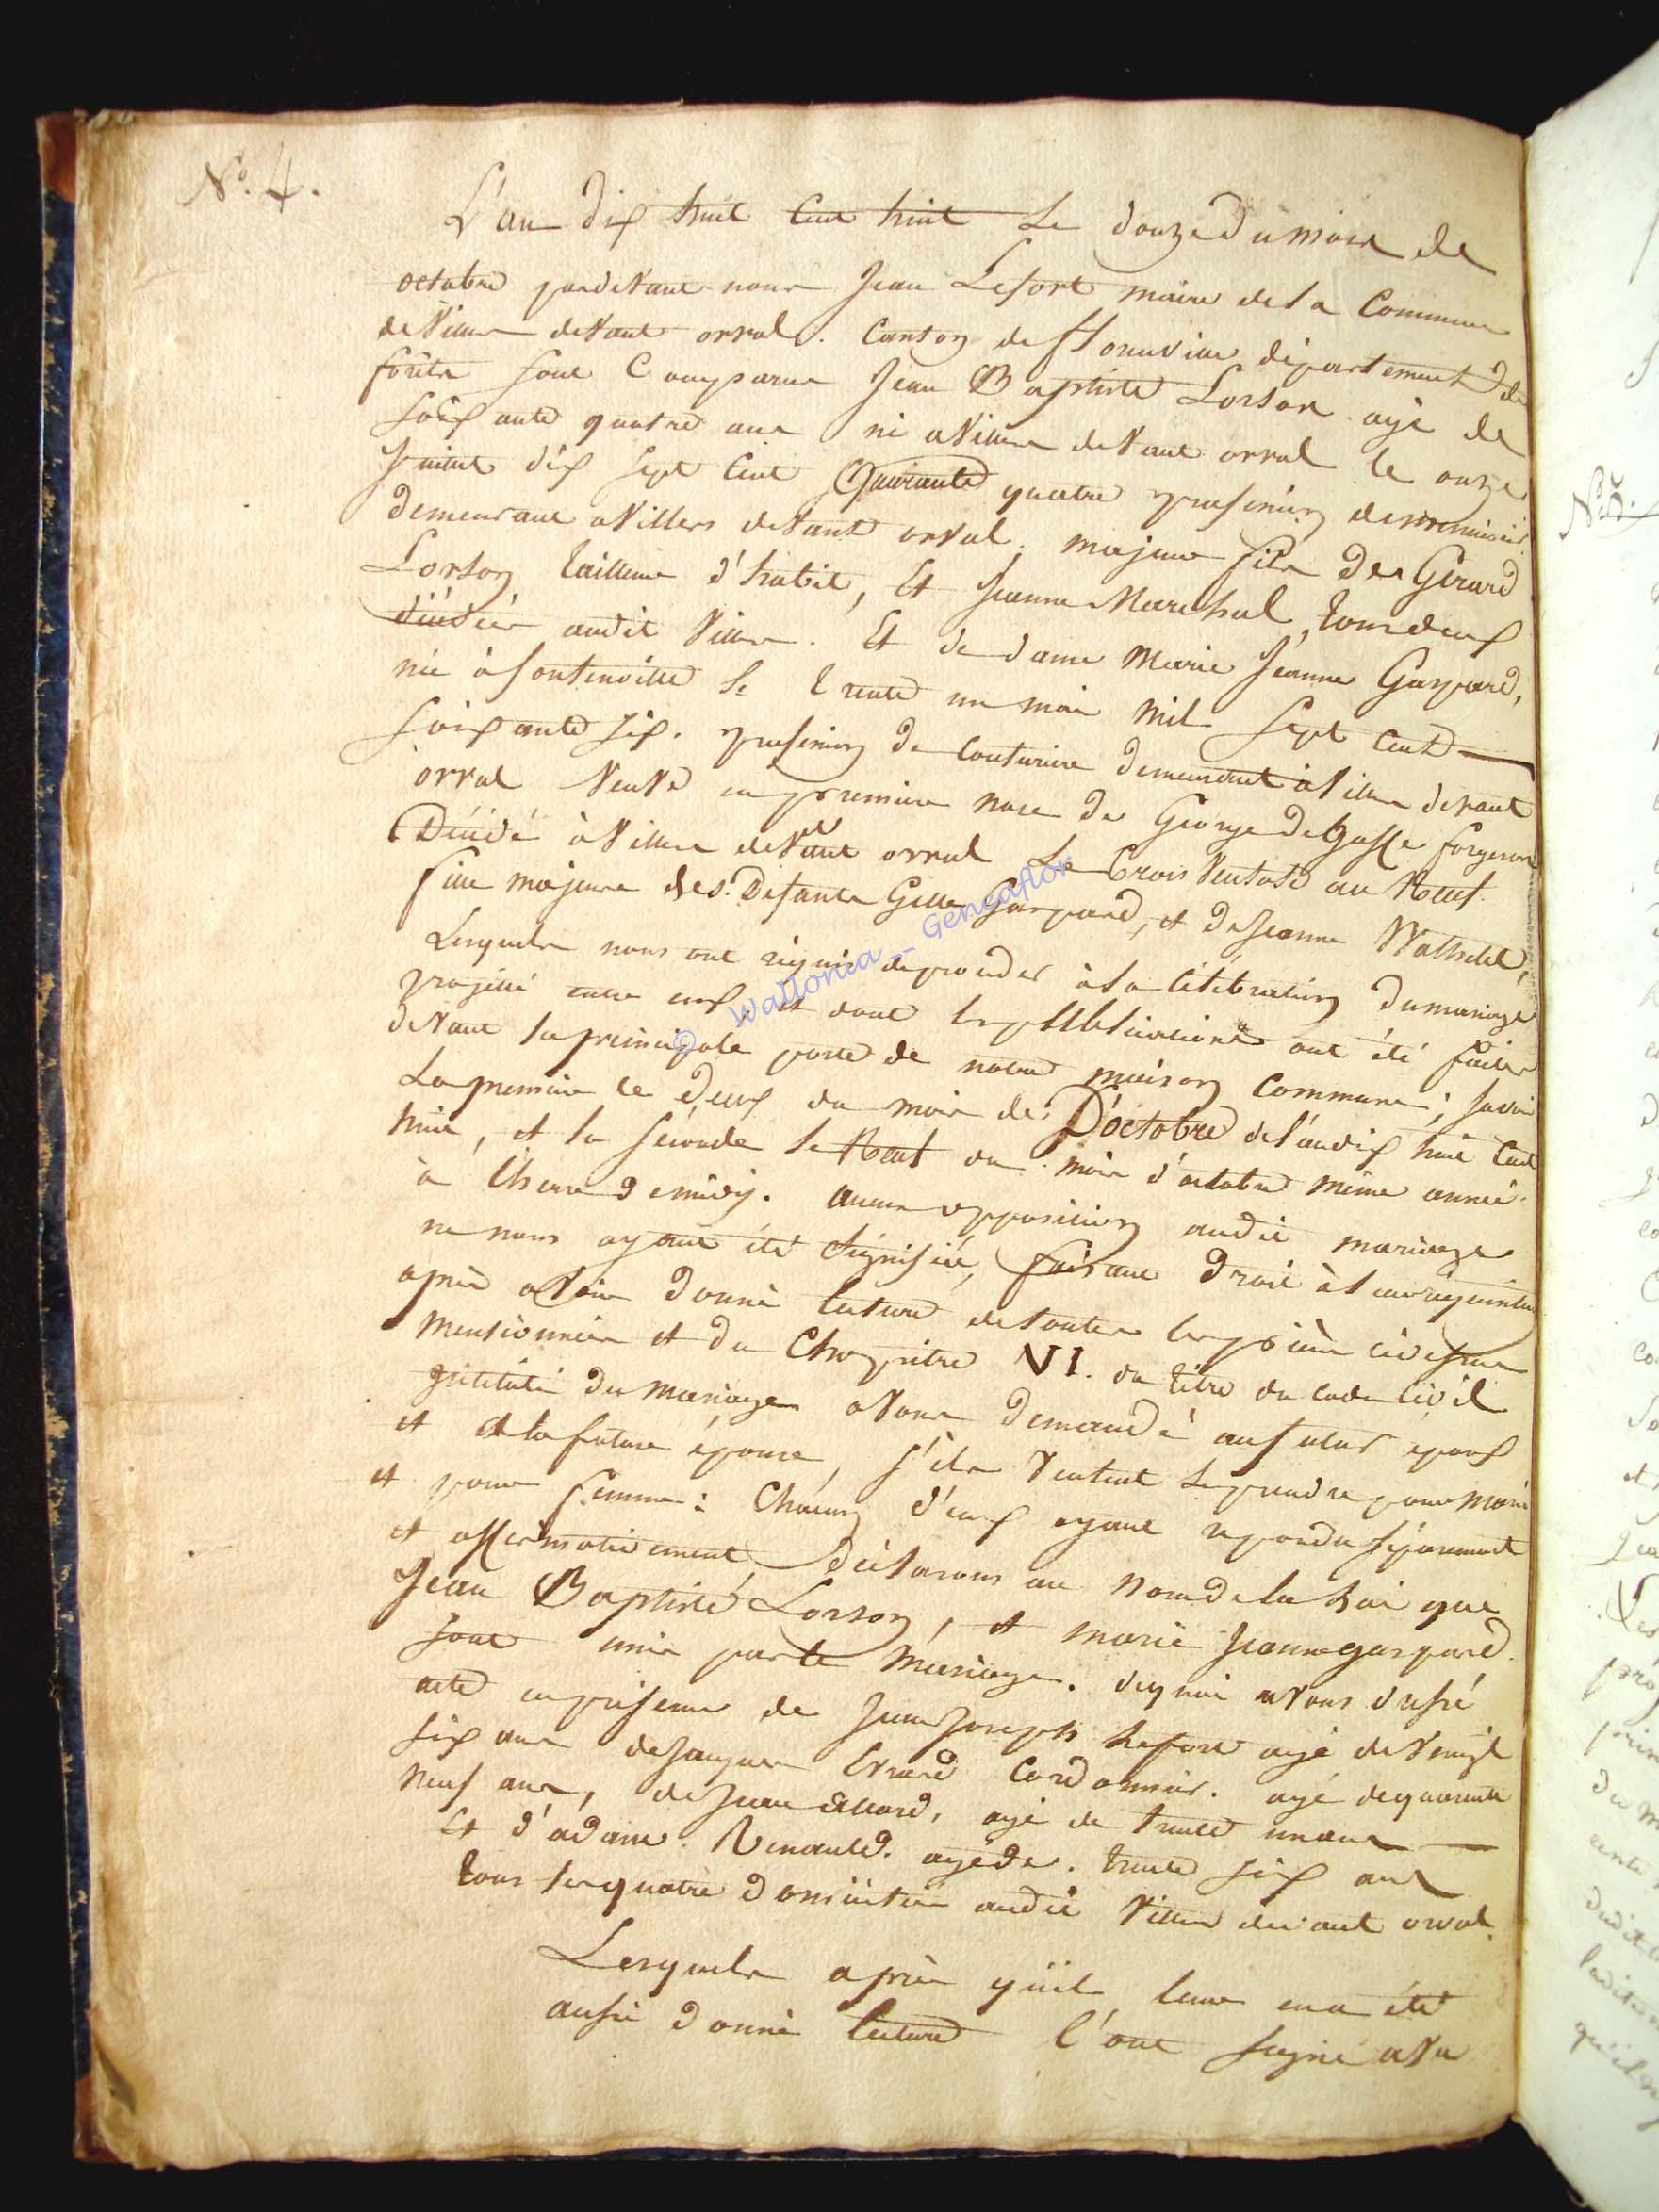 N.o 4.
L'an dix huit cent huit le douze du mois de
octobre pardevant nous Jean Lefort maire de la Commune
de Villers devant orval. Canton de florenville département des
forêts sont Comparus Jean Baptiste Lorson agé de
soixante quatre ans né a Villers devant orval le onze
Juillet dix sept cent Quarante quatre profession de
demeurant a Villers devant orval, majeur fils des Gerard
Lorson tailleur d'habit, et Jeanne Marechal, tous deux
décédés audit Villers. Et de dame Marie Jeanne Gaspard,
née à fontenoille le trente un mai mil sept cent
soixante six. profession de couturiere demeurant à Villers devant
orval Veuve en premiere noce de George Degosse forgeron
Décédé à Villers devant orval Le trois Ventose an Neuf.
fille majeure des Defunts Gille Gaspard, et de Jeanne Wathelet,
Lesquels nous ont requis de proceder à la célébration du mariage
projetté entre eux, et dont les publications ont été faites
devant la principale porte de notre maison Commune; savoir
La premiere le deux du mois de D'octobre de l'an dix huit cent
huit, et la seconde le Neuf du mois d'octobre même année
à l'heure de midy. aucune opposition audit mariage
ne nous ayant été signifiée, faisant droit à leur requisition
après avoir donné lecture de toutes les pièces ci dessus
mentionnées et du Chapitre VI. du titre du code civil
intitulé du mariage avons demandé au futur époux
et a la future épouse, s'ils veulent se prendre pour mari
et pour femme: Chacun d'eux ayant repondu séparement
et affirmativement, déclarons au nom de la loi que
Jean Baptiste Lorson, et marie Jeanne gaspard
sont unis par le mariage. de quoi avons dressé
acte en présence de Jean Joseph Lefort agé de vingt
six ans de Jaques Evrard Cordonnier. agé de quarante
neuf ans, de Jean allard, agé de trente un ans
Et d'adam Renauld. agé de. trente six ans
tous les quatre domiciliés audit Villers devant orval.
Lesquels après qu'il leur en a été
aussi donné lecture l'ont signé avec
© Wallonia - Geneaflor